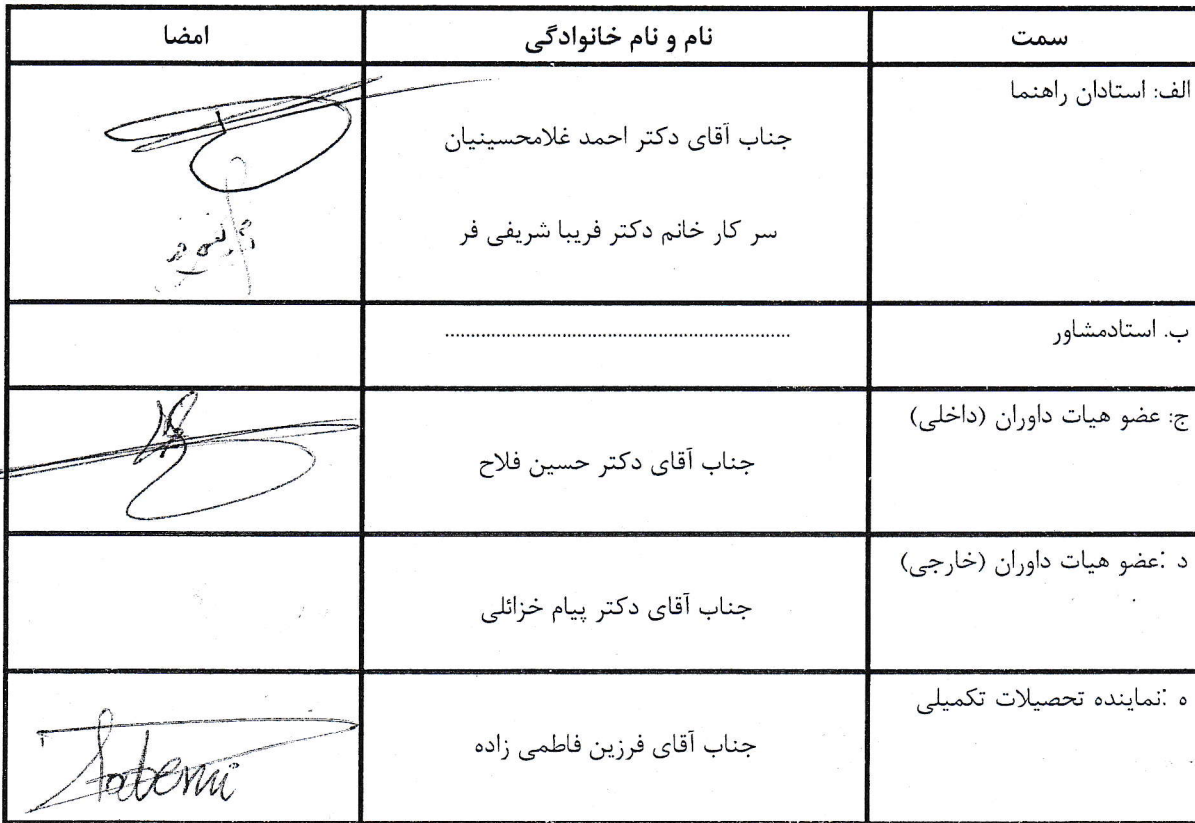 سمت	نام و نام خانوادگی	امضا
الف: استادان راهنما
جناب آقای دکتر احمد غلامحسینیان
سر کار خانم دکتر فریبا شریفی فر
ب. استادمشاور	................................................................................
ج: عضو هیات داوران (داخلی)
جناب آقای دکتر حسین فلاح
د :عضو هیات داوران (خارجی)
جناب آقای دکتر پیام خزائلی
ه :نماینده تحصیلات تکمیلی
جناب آقای فرزین فاطمی زاده